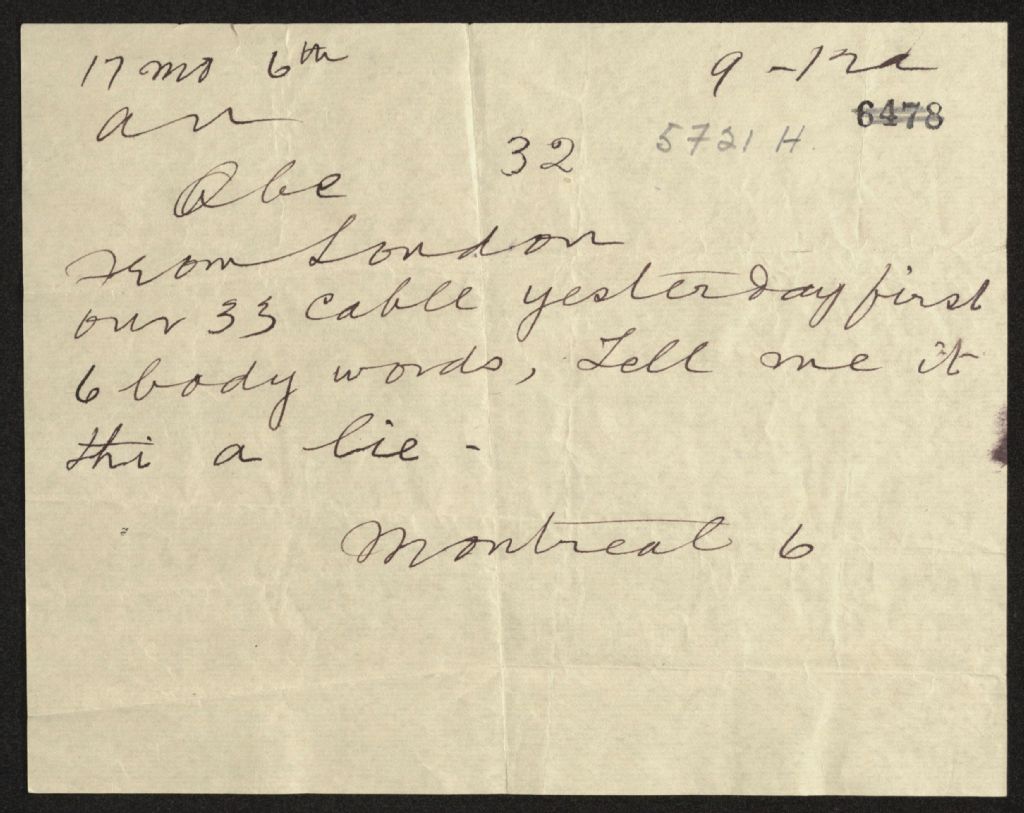 17 mo 6th 9-12a
6478
an 5721 H
Qbc 32
From London
our 33 cable yesterday first
6 body words, Tell me it
thi a lie -
Montreal 6